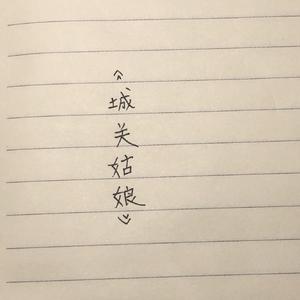 《城关姑娘》